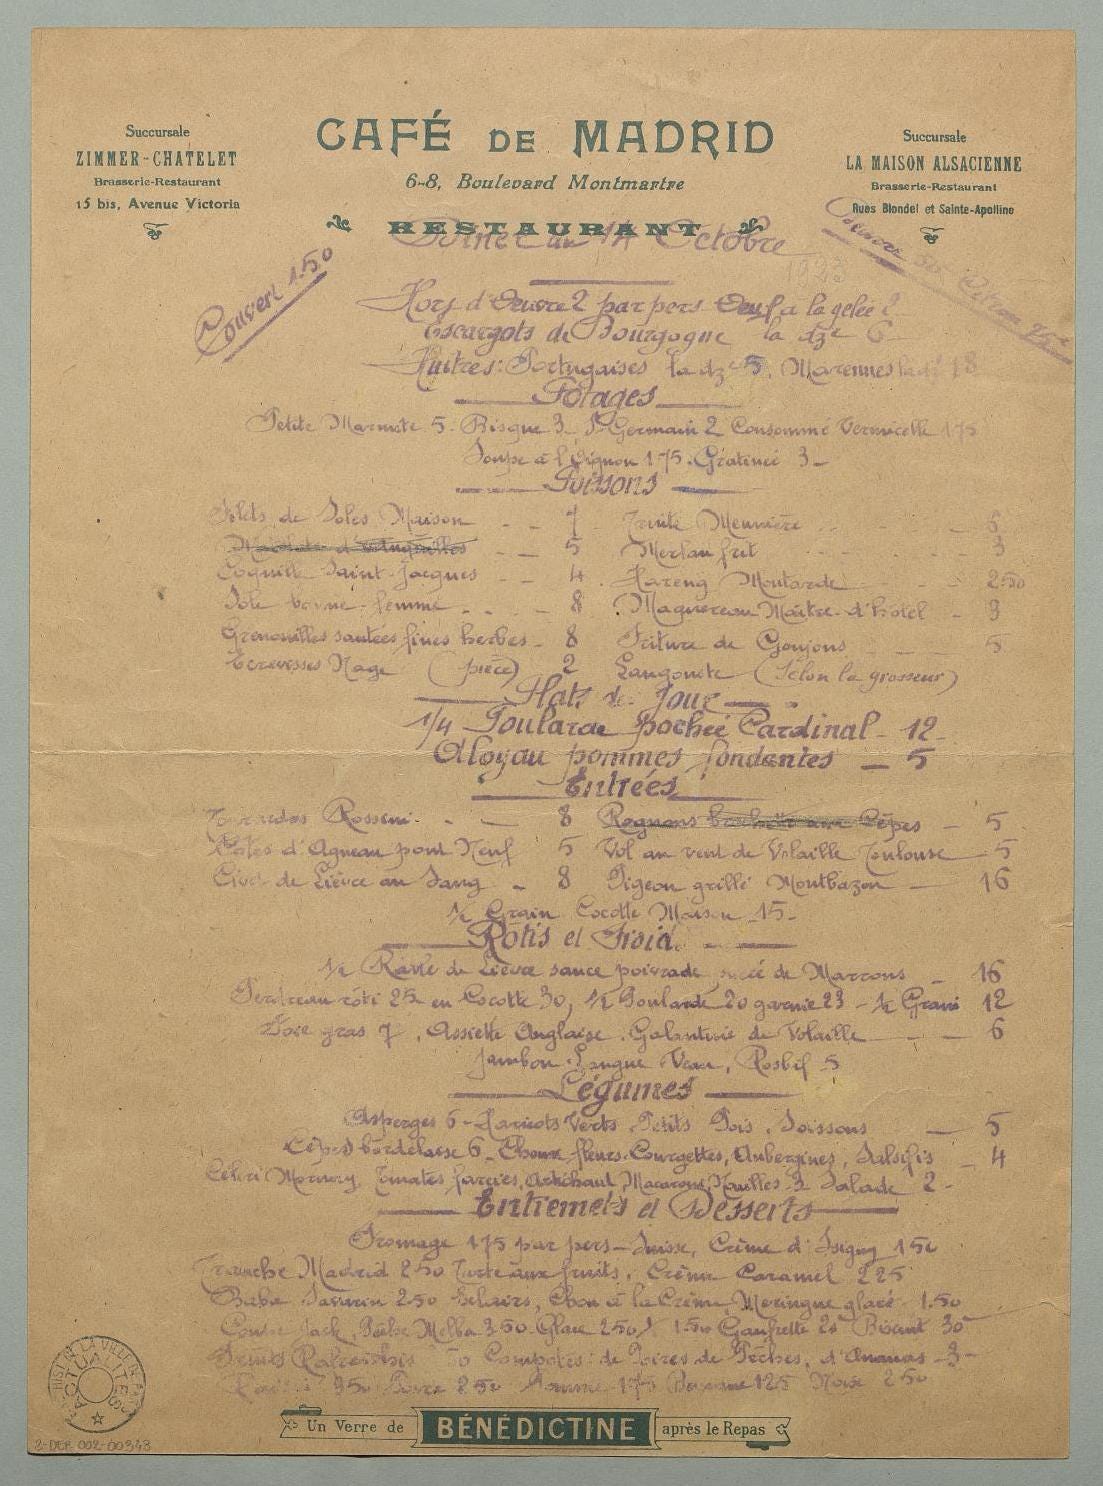 Succursale
ZIMMER-CHATELET
Brasserie-Restaurant
15 bis, Avenue Victoria
CAFÉ DE MADRID
6-8, Boulevard Montmartre
RESTAURANT
Succursale
LA MAISON ALSACIENNE
Brasserie-Restaurant
Rues Blondel et Sainte-Apolline
Diner du 14 Octobre
1923
Couvert 1.50
Beurre 50c Citron 25c
Hors d'Oeuvre 2 par pers Oeuf a la gelée 2
Escargots de Bourgogne la dze 6
Huitres: Portugaises la dze 5, Marennes la d 18
Potages
Petite Marmite 5 - Bisque 3 - St Germain 2 Consommé Vermicelle 1.75
Soupe à l'Oignon 1.75. Gratinée 3 -
Poissons
Filets de Soles Maison - - 7
Truite Meunière 6
Matelote d'Anguilles - - 5
Merlan frit 3
Coquille Saint-Jacques - - 4
Hareng Moutarde 2.50
Sole bonne-femme 8
Maquereau Maître-d'hôtel - 3
Grenouilles sautées fines herbes - 8
Friture de Goujons 5
Ecrevisses Nage (pièce) 2
Langouste (Selon la grosseur)
Plats du Jour
1/4 Poularde pochée Cardinal - 12 -
Aloyau pommes fondantes - 5
Entrées
Tournedos Rossini - 8
Rognons brochette aux Cêpes - 5
Côtes d'Agneau pont Neuf 5
Vol au vent de Volaille Toulouse - 5
Civet de Lièvre au Sang - 8
Pigeon grillé Montbazon - 16
1/2 Grain Cocotte Maison 15 -
Rôtis et Froid
1/2 Rable de Lièvre sauce poivrade, purée de Marrons - 16
Perdreau rôti 25 en Cocotte 30, 1/2 Poularde 20 garnie 23 - 1/2 Grain 12
Foie gras 7, Assiette Anglaise, Galantine de Volaille 6
Jambon - Langue Veau, Rosbif 5
Légumes
Asperges 6 - Haricots Verts, Petits Pois, Soissons - 5
Cêpes bordelaise 6 - Choux-fleurs - Courgettes, Aubergines, Salsifis - 4
Céleri Mornay, Tomates farcies, Artichaut Macaroni, Nouilles 3 Salade 2 -
Entremets et Desserts
Fromage 175 par pers - Suisse, Crème d'Isigny 150
Tranche Madrid 250 Tarte aux fruits, Crème Caramel 225
Baba Savarin 250 Eclairs, Chou à la Crème, Meringue glacé 1.50
Coupe Jack, Pêche Melba 350 - Glace 250, 1.50 Gaufrette 20 Biscuit 30
Fruits Rafraîchis 50 Compotes: de Poires de Pêches, d'Ananas - 3 -
Raisin 350 Poire 250 Pomme 175 Banane 125 Noix 250
Un Verre de BÉNÉDICTINE après le Repas
ACTUALITÉS
2-DEP 002-00343